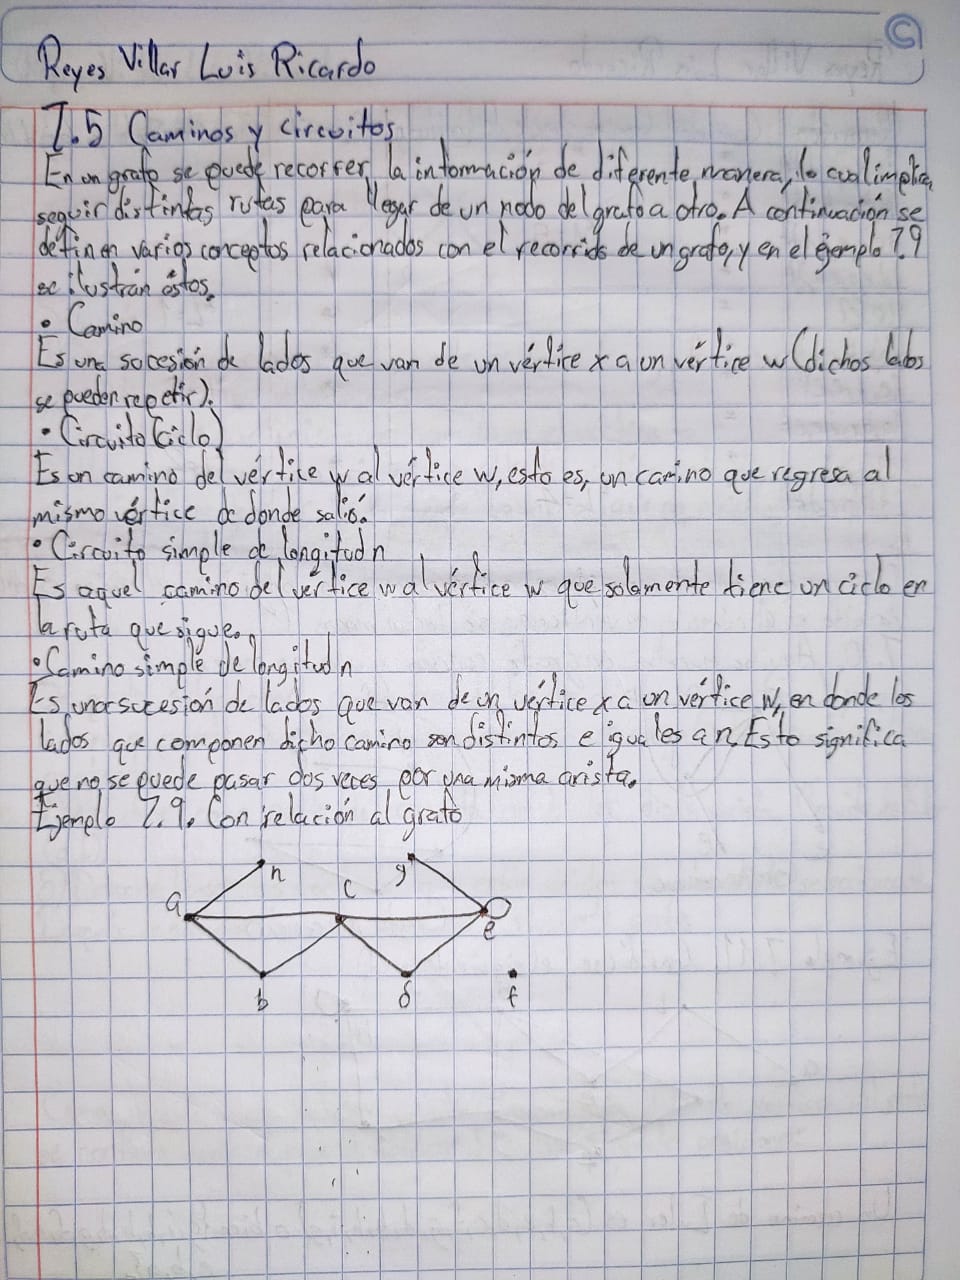 Reyes Villar Luis Ricardo
7.5 Caminos y circuitos
En un grafo se puede recorrer la información de diferente manera, lo cual implica
seguir distintas rutas para llegar de un nodo del grafo a otro. A continuación se
definen varios conceptos relacionados con el recorrido de un grafo, y en el ejemplo 7.9
se ilustran éstos.
• Camino
Es una sucesión de lados que van de un vértice x a un vértice w (dichos lados
se pueden repetir).
• Circuito (ciclo)
Es un camino del vértice w al vértice w, esto es, un camino que regresa al
mismo vértice de donde salió.
• Circuito simple de longitud n
Es aquel camino del vértice w al vértice w que solamente tiene un ciclo en
la ruta que sigue.
• Camino simple de longitud n
Es una sucesión de lados que van de un vértice x a un vértice w, en donde los
lados que componen dicho camino son distintos e iguales a n. Esto significa
que no se puede pasar dos veces por una misma arista.
Ejemplo 7.9. Con relación al grafo
h
g
c
a
e
b
d
f